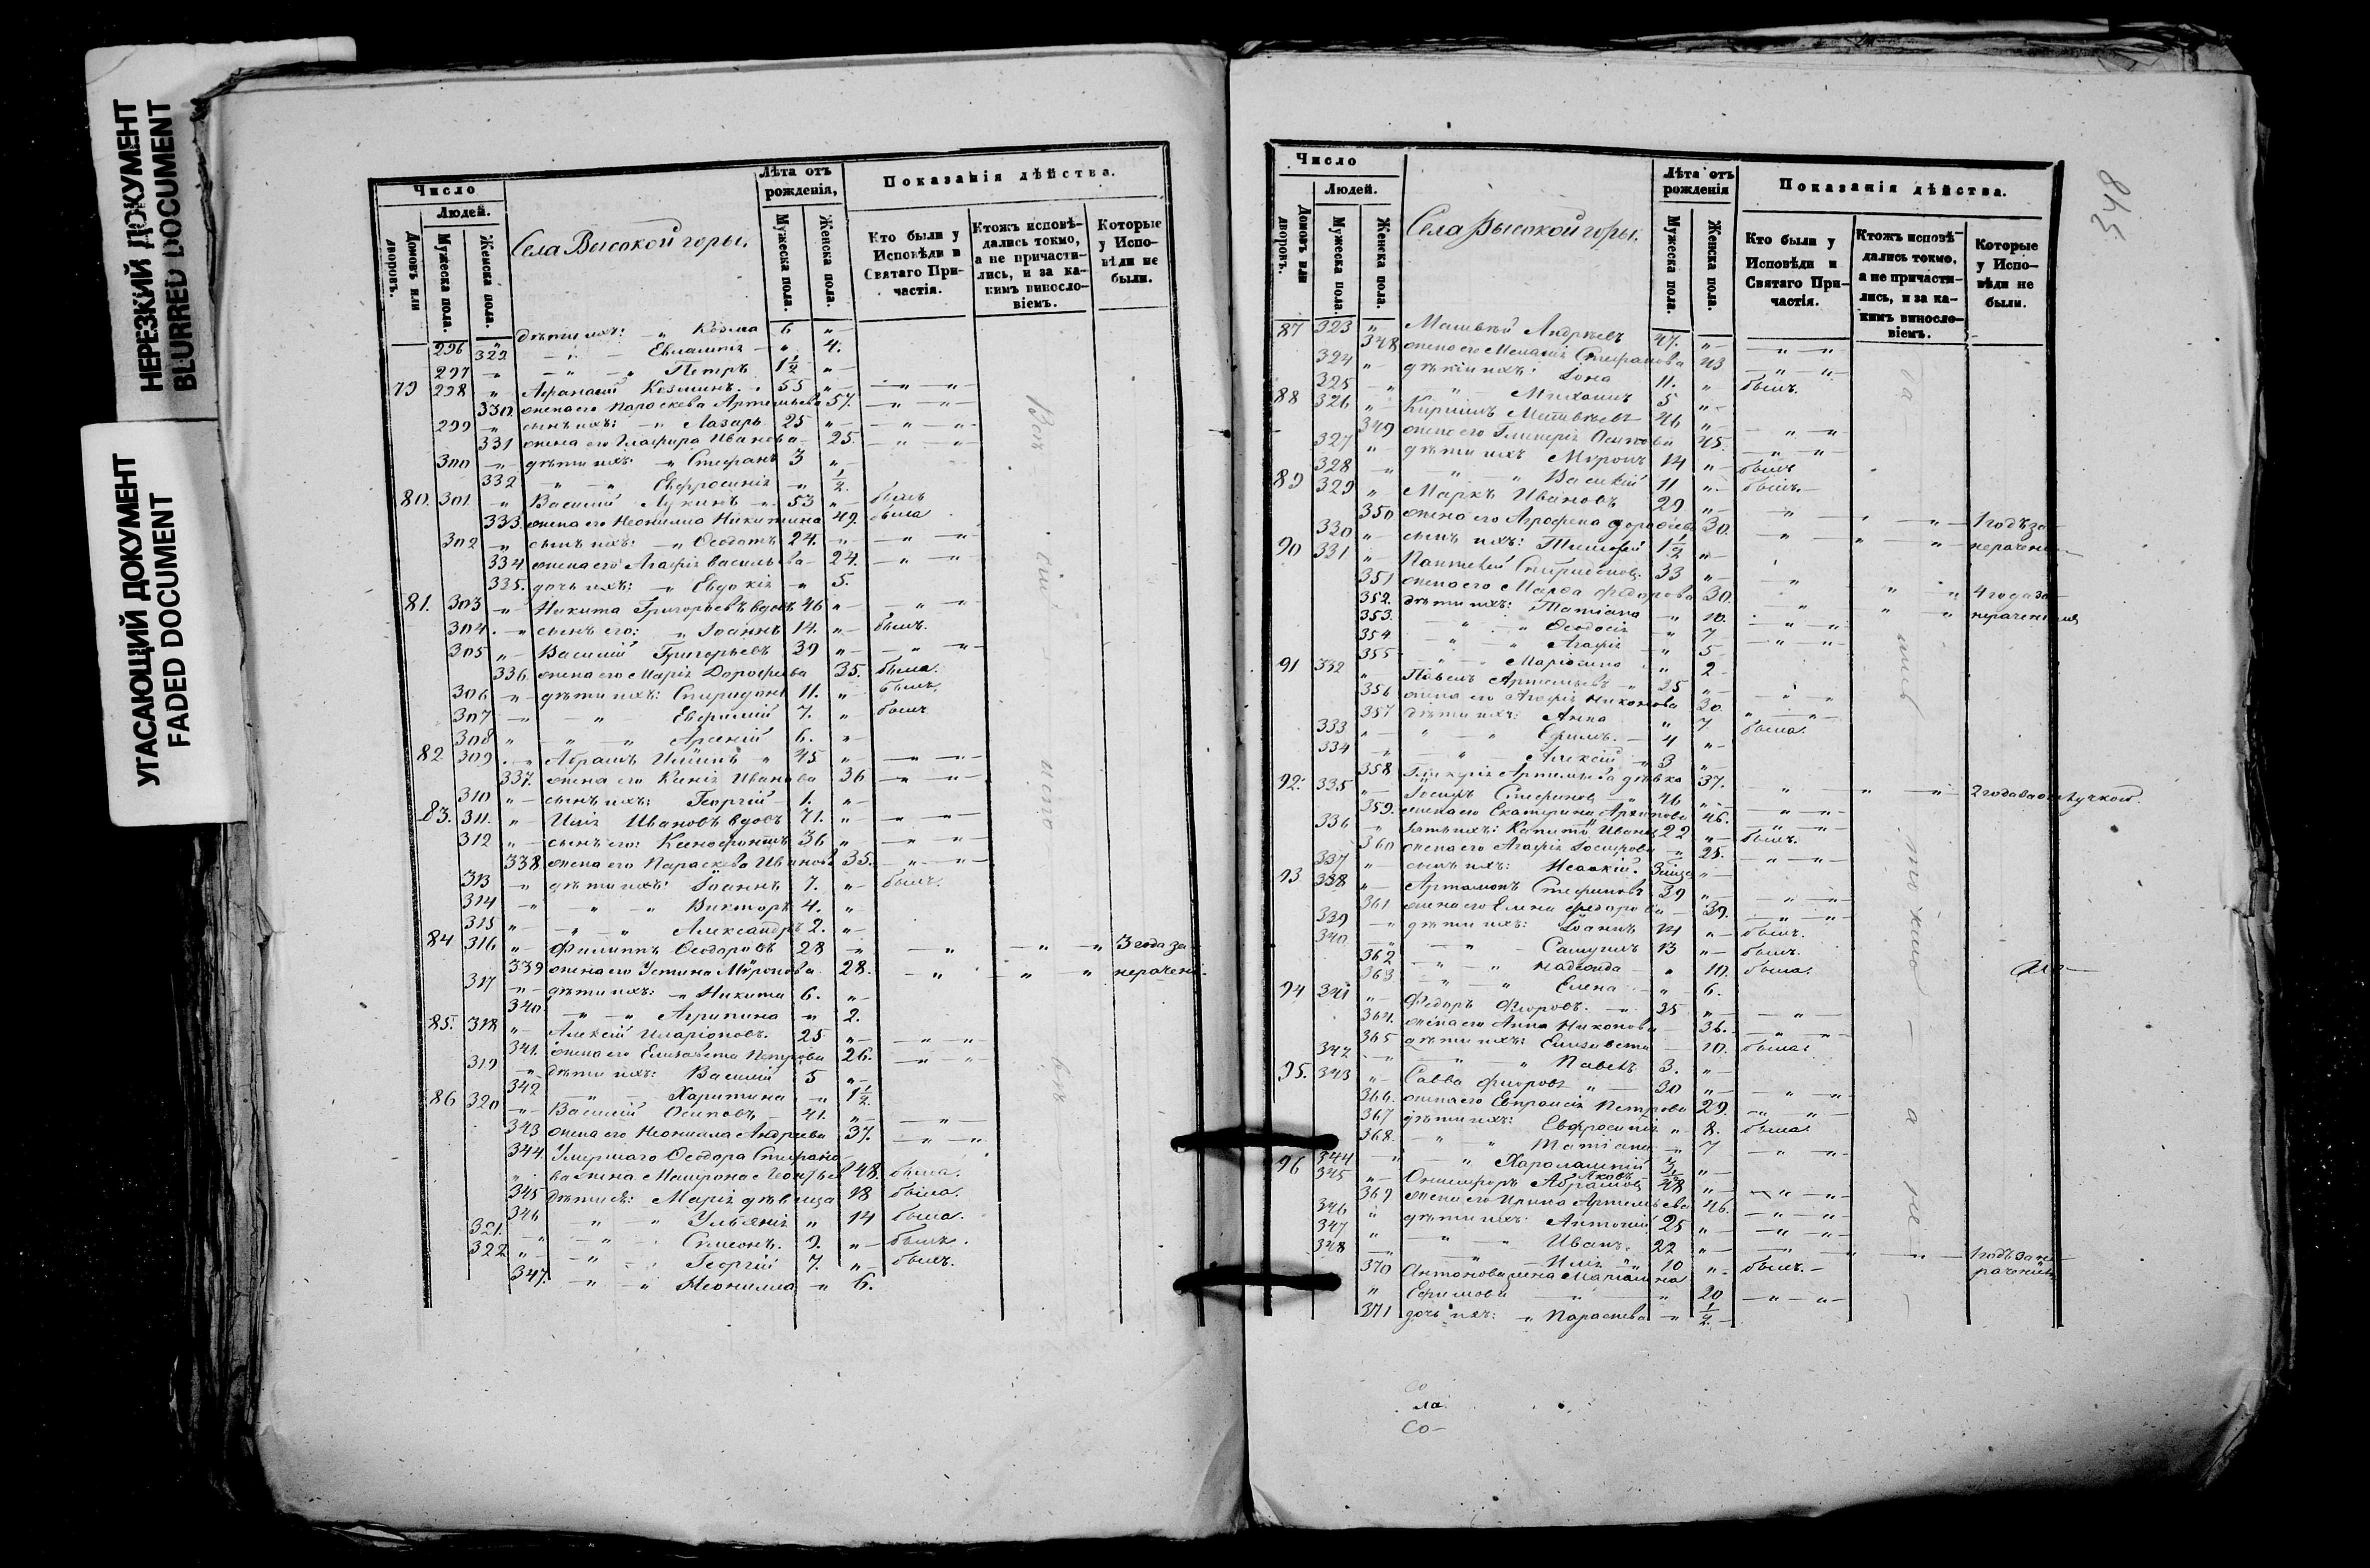 НЕРЕЗКИЙ ДОКУМЕНТ
BLURRED DOCUMENT
УГАСАЮЩИЙ ДОКУМЕНТ
FADED DOCUMENT
Число
Людей.
Домовъ или дворовъ.
Мужеска пола.
Женска пола.
Села Высокой горы.
Лѣта отъ рожденія,
Мужеска пола.
Женска пола.
Показанія дѣйства.
Кто были у Исповѣди и Святаго Причастія.
Ктожъ исповѣдались токмо, а не причастились, и за какимъ винословіемъ.
Которые у Исповѣди не были.
296 " дѣти ихъ: " Козма 6 "
322 " Евлампія " 4.
297 " " Петръ 1½ "
79 298 " Афанасій Козминъ 55 " " "
330. жена его Параскева Артемьева 57. " "
299 " сынъ ихъ: " Лазарь 25 " " "
331 жена его Глафира Иванова 25. " "
300 " дѣти ихъ: " Стефанъ 3 "
332 " " Евфросинія " ½.
80. 301. " Василій Лукинъ 53 " былъ
333. жена его Неонилла Никитина 49. была
302 " сынъ ихъ: " Ѳеодотъ 24. " " "
334. жена его Агафія Васильева 24. " "
335. дочь ихъ: " Евдокія " 5.
81. 303 " Никита Григорьевъ вдовъ 46 " " "
304. " сынъ его: " Іоаннъ 14. " былъ.
305 " Василій Григорьевъ 39 " " "
336. жена его Марія Дорофеева 35. была.
306 " дѣти ихъ: Спиридонъ 11. " былъ.
307 " " Евфимій 7. " былъ
308 " " " Арсеній 6. "
82 309. " Абрамъ Ильинъ " 45 " " "
337. жена его Ксенія Иванова 36 " "
310 " сынъ ихъ: Георгій 1. "
83. 311. " Илія Ивановъ вдовъ 71. " " "
312 " сынъ его: Ксенофонтъ 36 " " "
338 жена его Параскева Иванова 35. " "
313 " дѣти ихъ: Іоаннъ 7. " былъ.
314 " " " Викторъ 4. "
315 " " " Александръ 2. "
84 316 " Филиппъ Ѳеодоровъ 28 " " " " 3 года за
339 жена его Устина Миронова 28. " " " нерачені.
317 " дѣти ихъ: " Никита 6. "
340. " " Агрипина " 2.
85. 318 " Алексій Иларіоновъ. 25 " " "
341. жена его Елизавета Петрова 26. " "
319 " дѣти ихъ: Василій 5 "
342 " Харитина " 1½.
86 320 " Василій Осиповъ 41. " "
343 жена его Неонилла Андреева 37. " "
344 Умершаго Ѳеодора Стефано-
" ва жена Матрона Леонтьев. 48. была.
345 дѣти ея: Марія дѣвица 18 была.
346 " " Ульянія " 14 была.
321. " " Симеонъ. 9. " былъ.
322 " " Георгій 7. " былъ.
347. " " Неонилла " 6.
Всѣ
сіи
исло
бы
348.
Число
Людей.
Домовъ или дворовъ.
Мужеска пола.
Женска пола.
Села Высокой горы.
Лѣта отъ рожденія
Мужеска пола.
Женска пола.
Показанія дѣйства.
Кто были у Исповѣди и Святаго Причастія.
Ктожъ исповѣдались токмо, а не причастились, и за какимъ винословіемъ.
Которые у Исповѣди не были.
87 323 " Матвѣй Андреевъ 47. " " "
348 жена его Меланія Стефанова 43 " "
324 " дѣти ихъ: Іона 11. " былъ.
325 " " Михаилъ 5 "
88 326 " Кирилъ Матвѣевъ 46 " " "
349 жена его Гликерія Осипова 45. " "
327 " дѣти ихъ Миронъ 14 " былъ
328 " " Василій 11 " былъ.
89 329 " Маркъ Ивановъ 29 " " " " 1 годъ за
350 жена его Агрофена Дорофеева 30. " " " нерачені
330 " сынъ ихъ: Тимофей 1½ "
90 331 " Пантелей Спиридонов. 33 " " " " 4 года за
351 жена его Марѳа Федорова 30. " " " нераченіемъ
352. дѣти ихъ: Татіана " 10. " "
353. " " Ѳеодосія " 7 " "
354 " " Агафія " 5
355 " " Маріамна " 2
91 332 " Павелъ Артемьевъ " 35 " " "
356 жена его Агафія Никонова 30 " "
357 дѣти ихъ: Анна " 7 была.
333 " " " Ефимъ. 4 "
334 " " Алексій " 3 "
358 Гликерія Артемьева дѣвка 37. " " " 2 года въ отлучкой.
92. 335 " Іосифъ Стефановъ 46 " " "
359. жена его Екатерина Архипова 46. " "
336 " зять ихъ: Капитонъ Ивановъ 22 " былъ.
360 жена его Агафія Іосифова " 25. " "
337 " сынъ ихъ: Исаакій. 3 мца "
93 338 " Артамонъ Стефановъ 39 " " "
361 жена его Елена Федорова 39. " "
339 " дѣти ихъ: Іоаннъ 14 " былъ.
340 " " Самуилъ 13 " былъ.
362 " " Надежда " 10. была.
363 " " Елена " 6.
94 341 " Федоръ Флоровъ. 35 " "
364. жена его Анна Никонова 36. " "
365 дѣти ихъ: Елизавета 10. была.
342 " " Павелъ 3. "
95. 343 " Савва Флоровъ " 30 " " "
366. жена его Евпраксія Петрова 29. " "
367 дѣти ихъ: Евфросинія " 8. была.
368. " " Татіана " 7 " "
344 " " Харалампій ¾ "
96 345 " Онисифоръ Абрамовъ 48 " " "
369 жена его Ирина Артемьева 46. " "
346 " дѣти ихъ: Антоній 25 " " "
347 " " " Иванъ. 22 " " " " 1 годъ за не
348 " " Илія " 10 " былъ. раченіемъ
370 Антонова жена Маріамна
" Ефимова " " 20 " "
371 дочь ихъ: " Параскева " ½.
ла
Со-